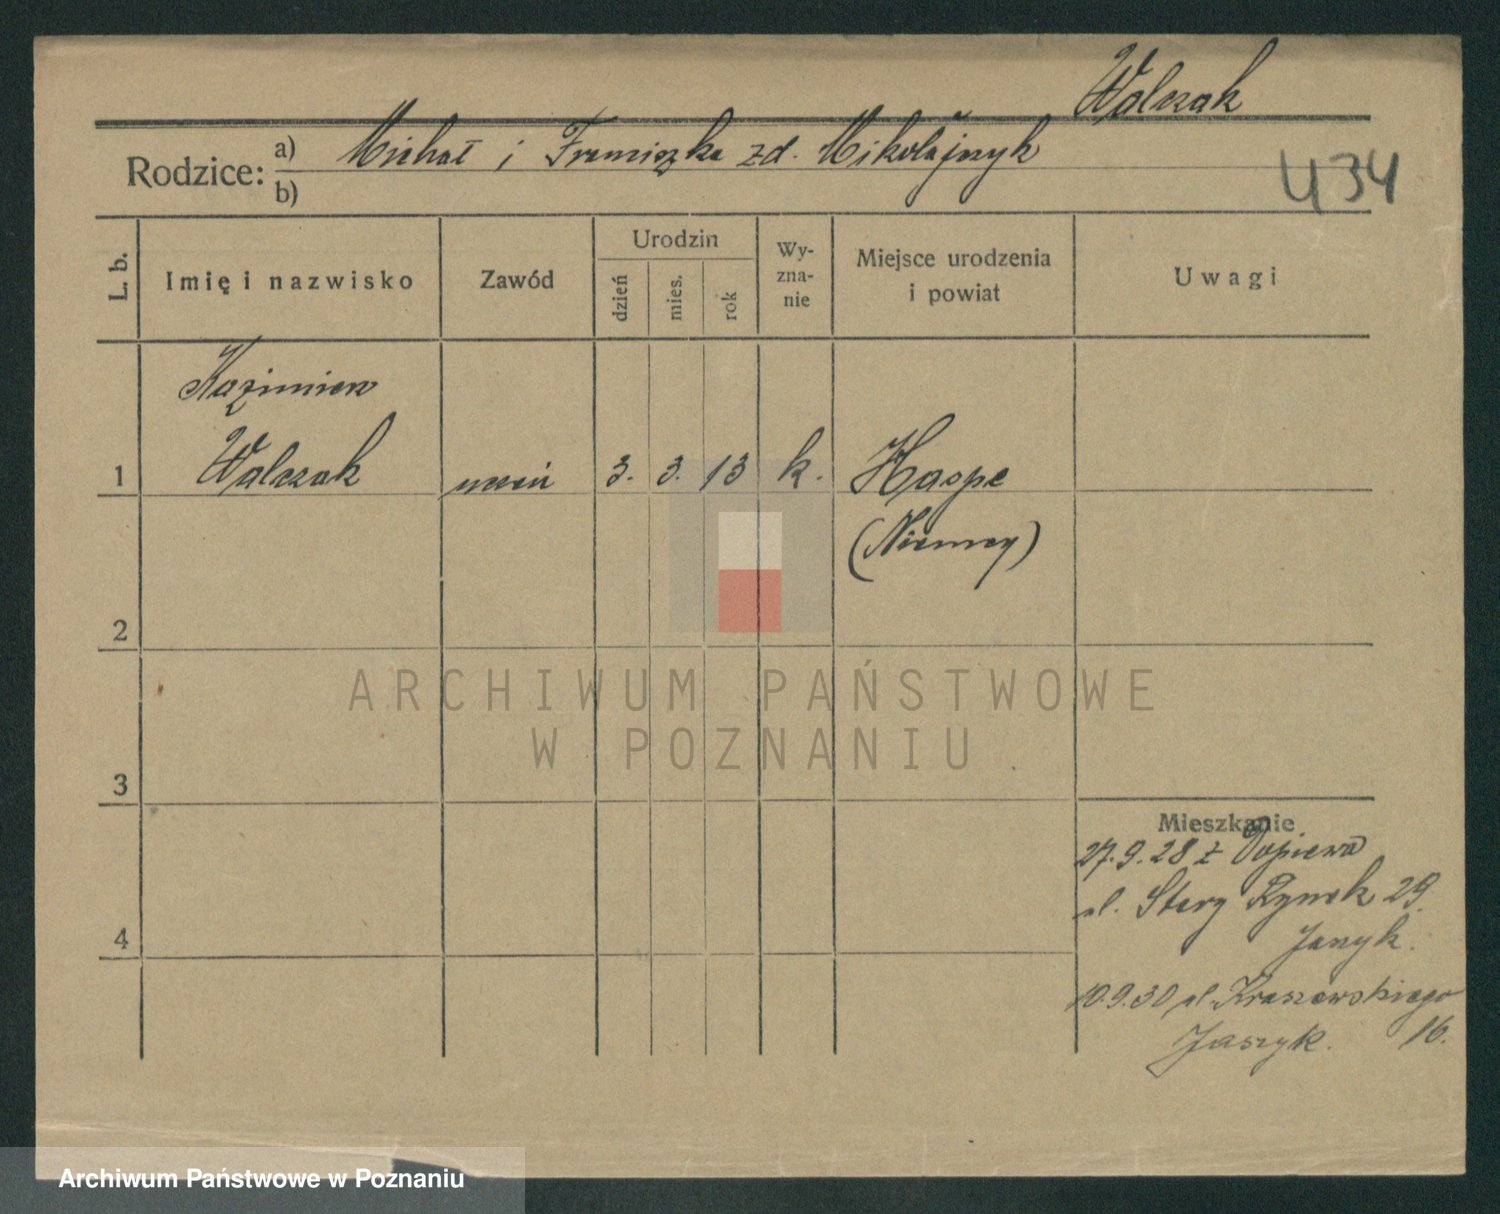 Walczak
Rodzice: a) Michał i Franciszka zd. Mikołajczyk
b)
434
L. b.
Imię i nazwisko
Zawód
Urodzin
dzień
mies.
rok
Wy-
zna-
nie
Miejsce urodzenia
i powiat
Uwagi
Kazimierz
1 Walczak uczeń 3. 3. 13 k. Haspe
(Niemcy)
2
3
4
Mieszkanie
27.9.28 z Dopiewa
ul. Stary Rynek 29.
10.9.30 ul. Kraszewskiego
16.
Jaszyk.
ARCHIWUM PAŃSTWOWE
W POZNANIU
Archiwum Państwowe w Poznaniu